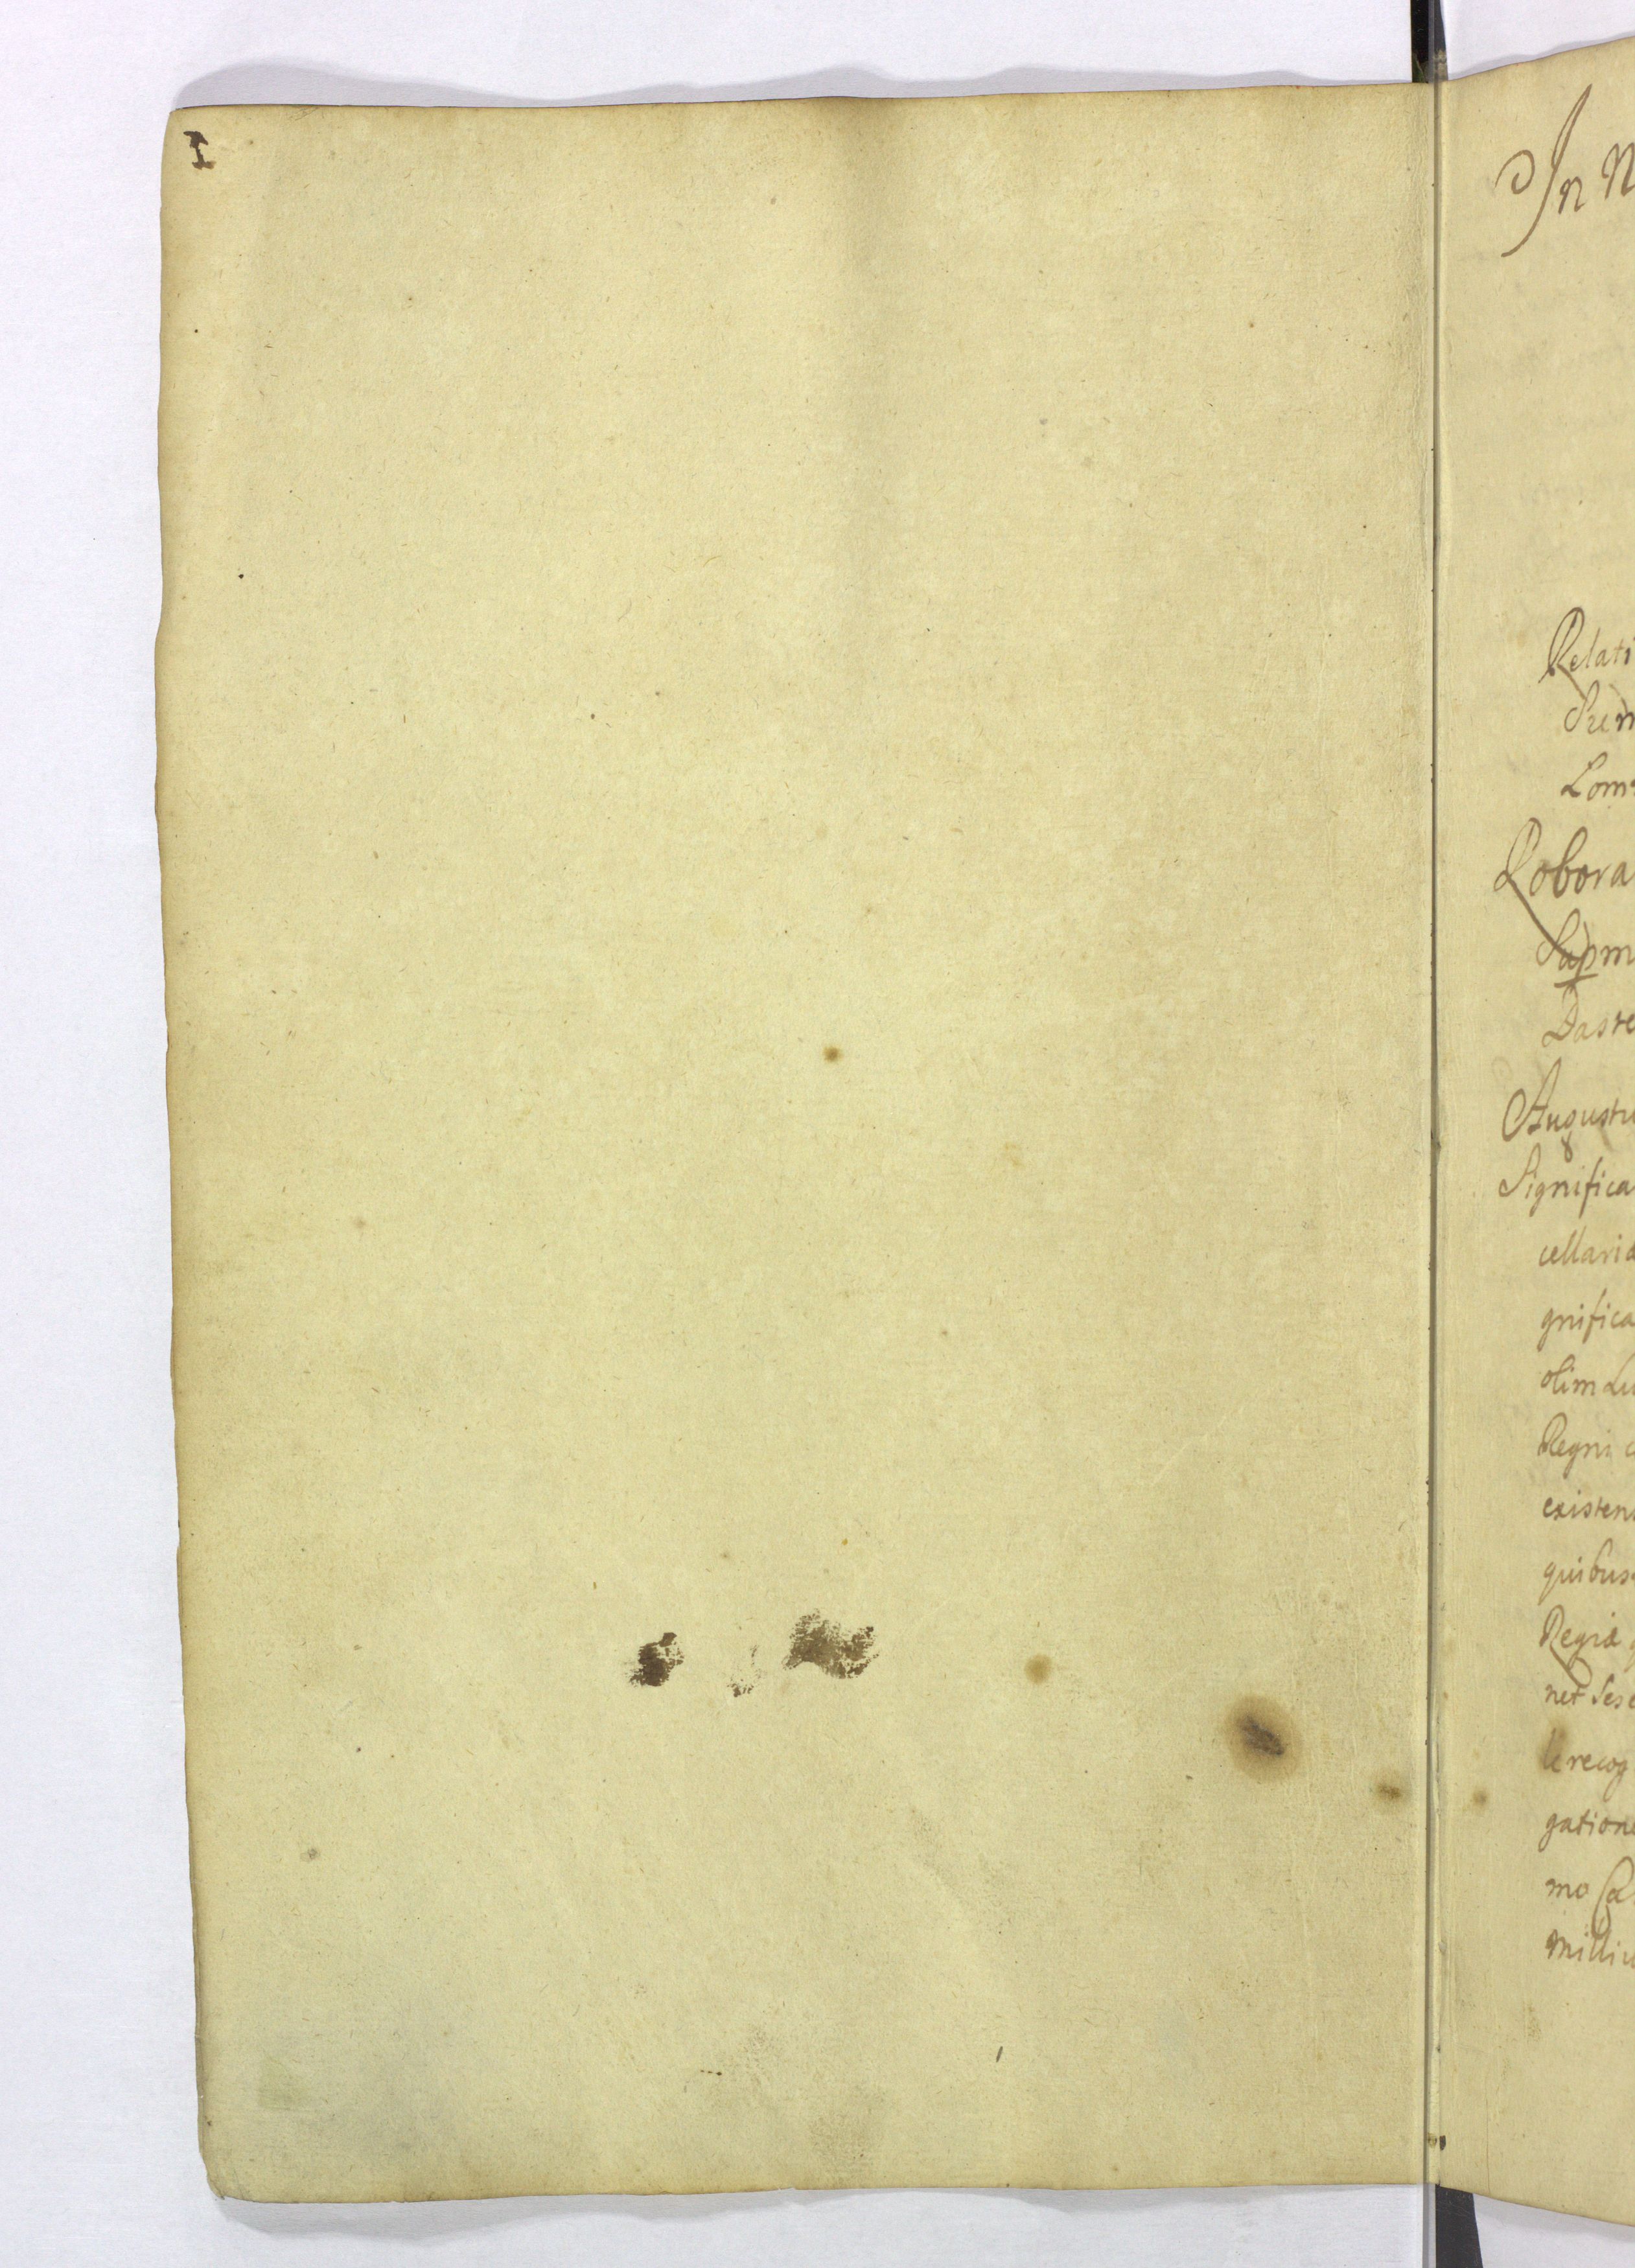 I
In N
Relati
Lom
Robora
Augustu
Significa
cellaria
gnifica
olim Lu
Regni
existen
quibus
Regia
net Ses
le recog
gatione
mo Ca
milliu